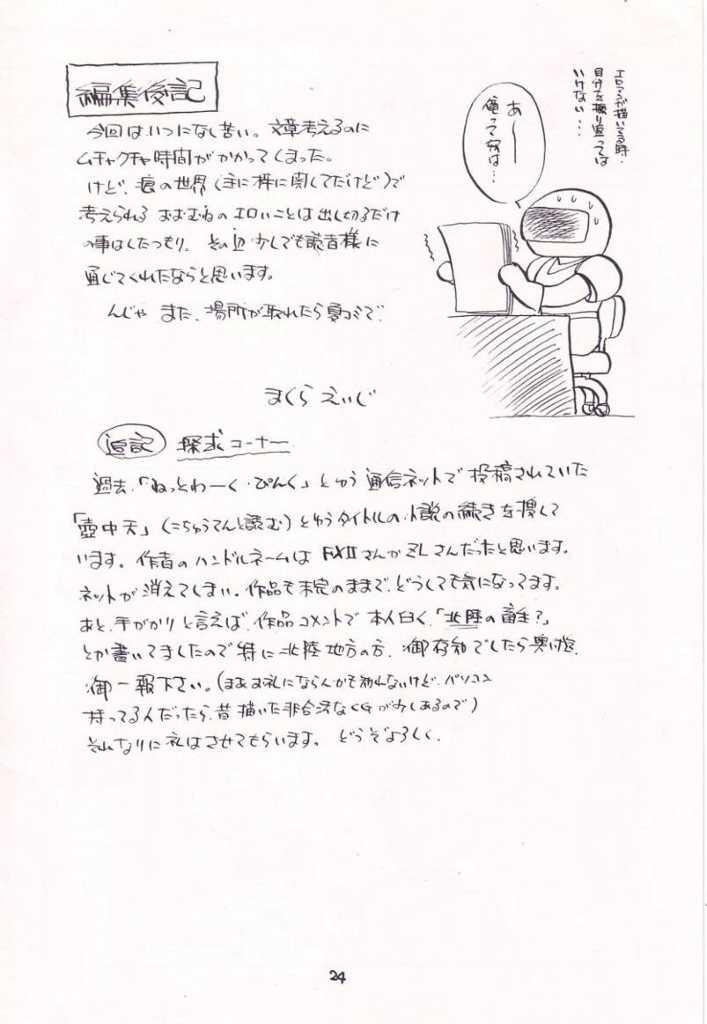 編集後記
今回はいつになし苦い。文章考えるのに
ムチャクチャ時間がかかってしまった。
けど、痕の世界(主に梓に関してだけど)で
考えられる おおむねのエロいことは出し切るだけ
の事はしたつもり。その辺少しでも読者様に
通じてくれたならと思います。
んじゃ また、場所が取れたら夏コミで。
まくら えいじ
エロマンガ描いてる時、
自分を振り返っては
いけない…
あ〜
俺って奴は…
追記 探求コーナー
過去、「ねっとわーく・ぴんく」とゆう通信ネットで投稿されていた
「壺中天」(こちゅうてんと読む)とゆうタイトルの小説の続きを捜して
います。作者のハンドルネームは FXIIさんかZLさんだったと思います。
ネットが消えてしまい、作品も未完のままで、どうしても気になってます。
あと、手がかりと言えば、作品コメントで本人曰く、「北陸の畜生?」
とか書いてましたので特に北陸地方の方、御存知でしたら
御一報下さい。(まあお礼にならんかも知れないけど、パソコン
持ってるんだったら、昔描いた非合法なCGが少しあるので)
それなりに礼はさせてもらいます。どうぞよろしく。
24